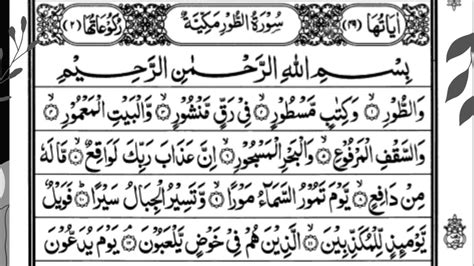 اٰیَاتُهَا (۴۹) سُوْرَةُ الطُّوْرِ مَكِّیَّةٌ رُكُوْعَاتُهَا (۲)
بِسْمِ اللّٰهِ الرَّحْمٰنِ الرَّحِیْمِ
وَالطُّوْرِ ۱ وَكِتٰبٍ مَّسْطُوْرٍ ۲ فِیْ رَقٍّ مَّنْشُوْرٍ ۳ وَّالْبَیْتِ الْمَعْمُوْرِ ۴
وَالسَّقْفِ الْمَرْفُوْعِ ۵ وَالْبَحْرِ الْمَسْجُوْرِ ۶ اِنَّ عَذَابَ رَبِّكَ لَوَاقِعٌ ۷ مَّا لَهٗ
مِنْ دَافِعٍ ۸ یَّوْمَ تَمُوْرُ السَّمَآءُ مَوْرًا ۹ وَّتَسِیْرُ الْجِبَالُ سَیْرًا ۱۰ فَوَیْلٌ
یَّوْمَئِذٍ لِّلْمُكَذِّبِیْنَ ۱۱ الَّذِیْنَ هُمْ فِیْ خَوْضٍ یَّلْعَبُوْنَ ۱۲ یَوْمَ یُدَعُّوْنَ